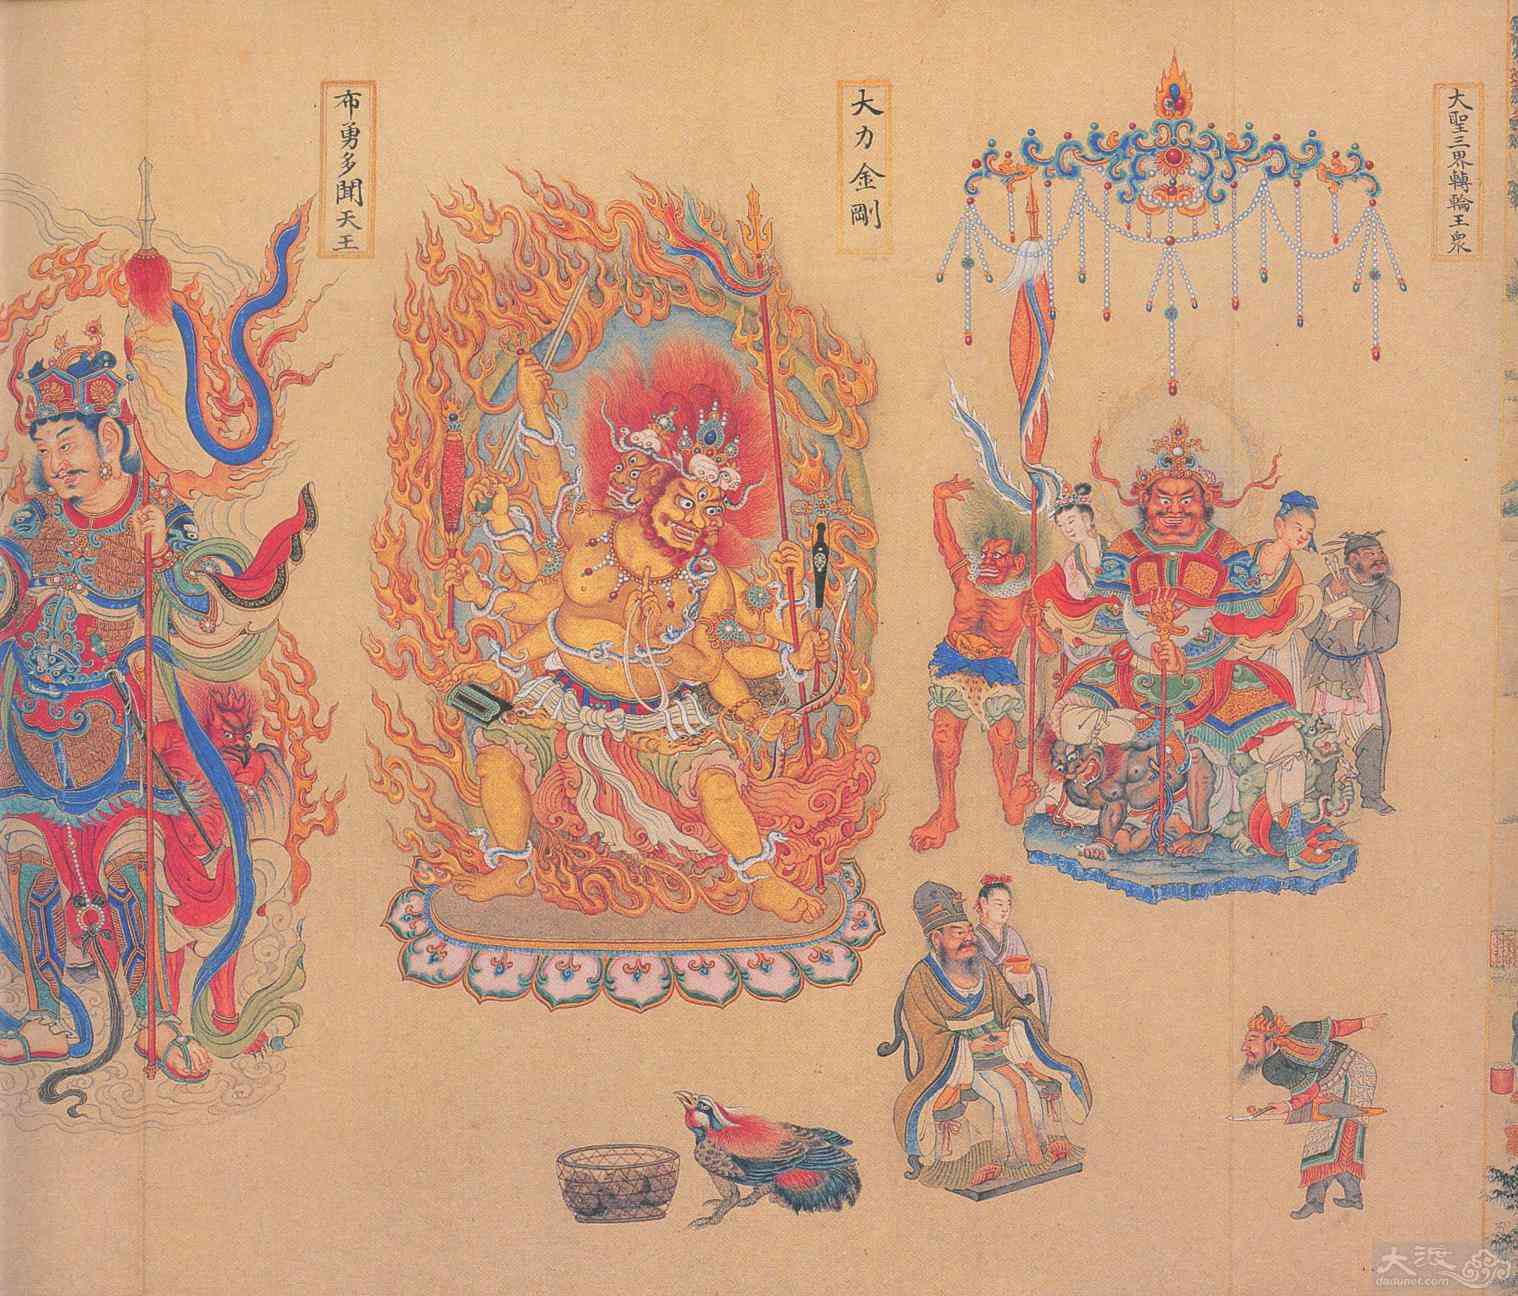 大聖三界轉輪王眾
大力金剛
布勇多聞天王
大渡
dadunet.com